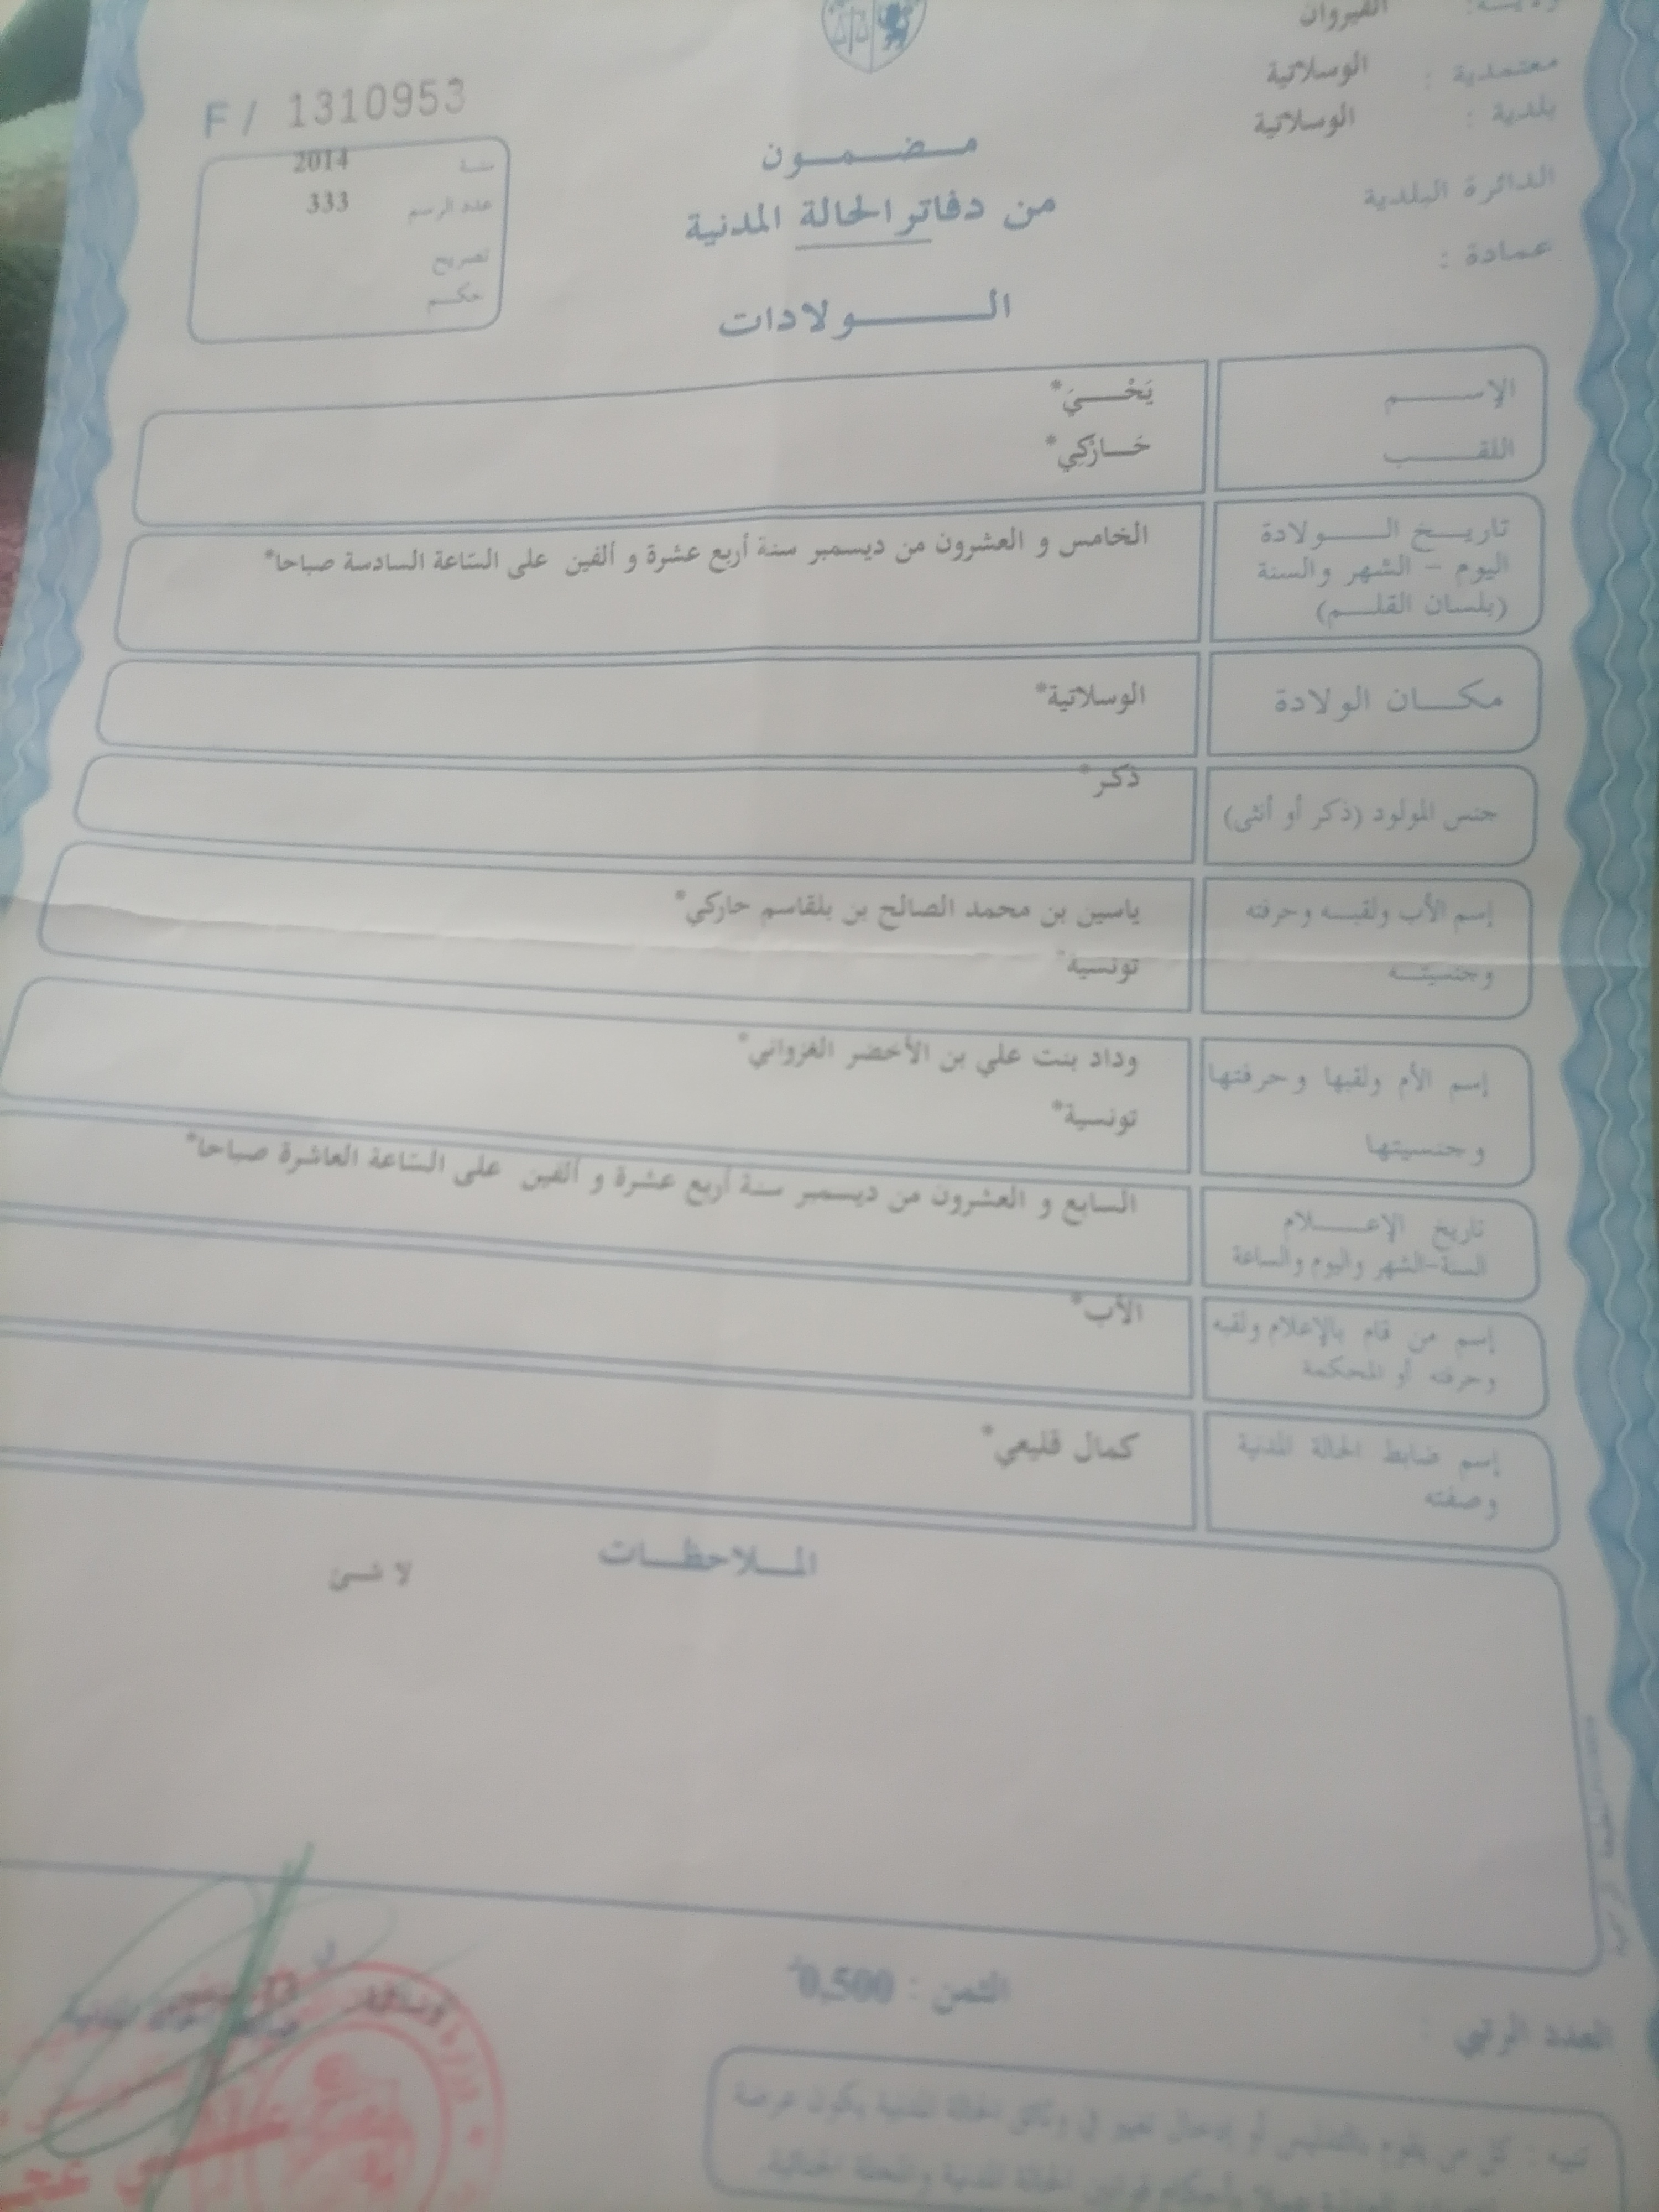 القيروان
معتمدية : الوسلاتية
بلدية : الوسلاتية
الدائرة البلدية
عمادة :
F / 1310953
سنة 2014
عدد الرسم 333
تصريح
حكم
مضمون
من دفاتر الحالة المدنية
الولادات
الإسم يَحْيَ*
اللقب حَارْكِي*
تاريخ الولادة
اليوم - الشهر والسنة
(بلسان القلم)
الخامس و العشرون من ديسمبر سنة أربع عشرة و ألفين على السّاعة السادسة صباحا*
مكان الولادة الوسلاتية*
جنس المولود (ذكر أو أنثى) ذكر*
إسم الأب ولقبه وحرفته ياسين بن محمد الصالح بن بلقاسم حاركي*
وجنسيته تونسية*
إسم الأم ولقبها وحرفتها وداد بنت علي بن الأخضر الغزواني*
وجنسيتها تونسية*
تاريخ الإعلام
السنة-الشهر واليوم والساعة
السابع و العشرون من ديسمبر سنة أربع عشرة و ألفين على السّاعة العاشرة صباحا*
إسم من قام بالإعلام ولقبه
وحرفته أو المحكمة
الأب*
إسم ضابط الحالة المدنية
وصفته
كمال قليعي*
الملاحظات
لا شئ
الثمن : 0,500
العدد الرتبي :
تنبيه : كل من يقوم بالتدليس أو إدخال تغيير في وثائق الحالة المدنية يكون عرضة